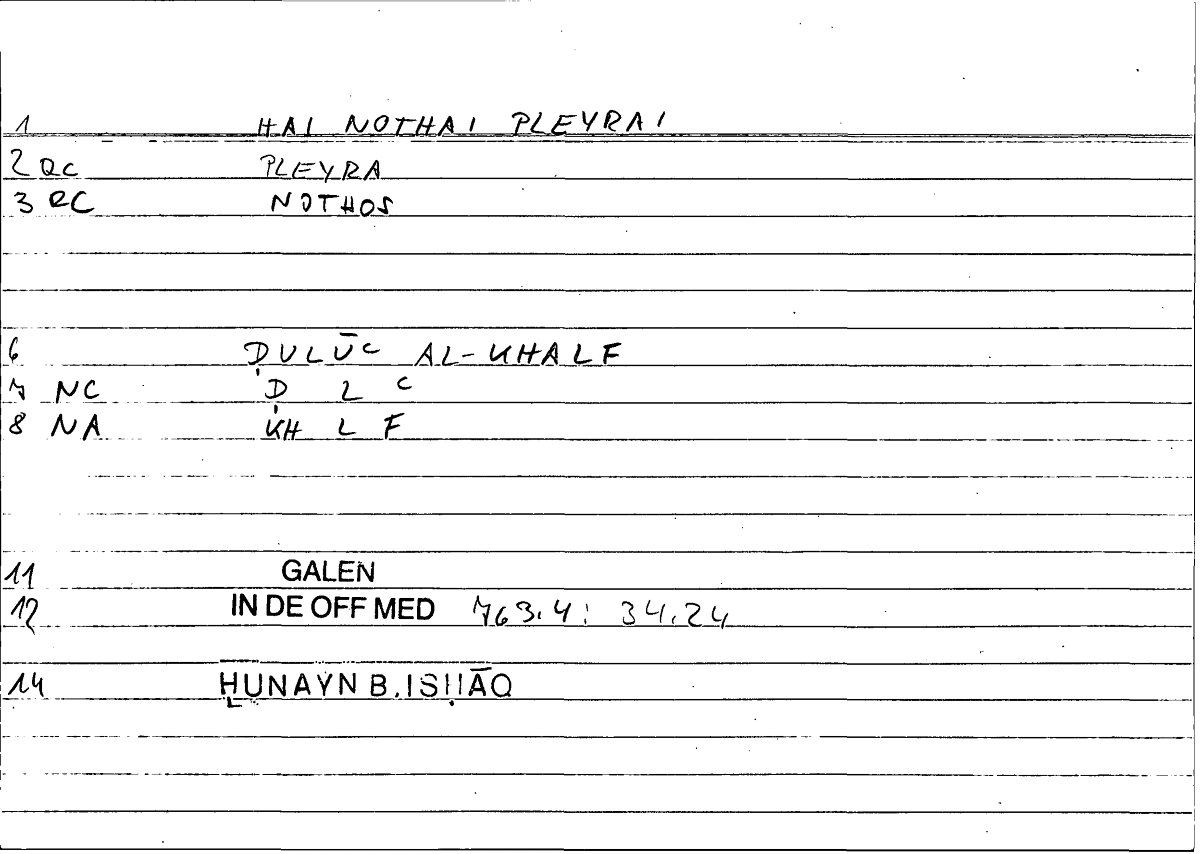 1 HAI NOTHAI PLEYRAI
2 QC PLEYRA
3 RC NOTHOS
6 ḌULŪC AL-KHALF
7 NC Ḍ L C
8 NA KH L F
11 GALEN
12 IN DE OFF MED 763.4: 34.24
14 ḤUNAYN B. ISḤĀQ